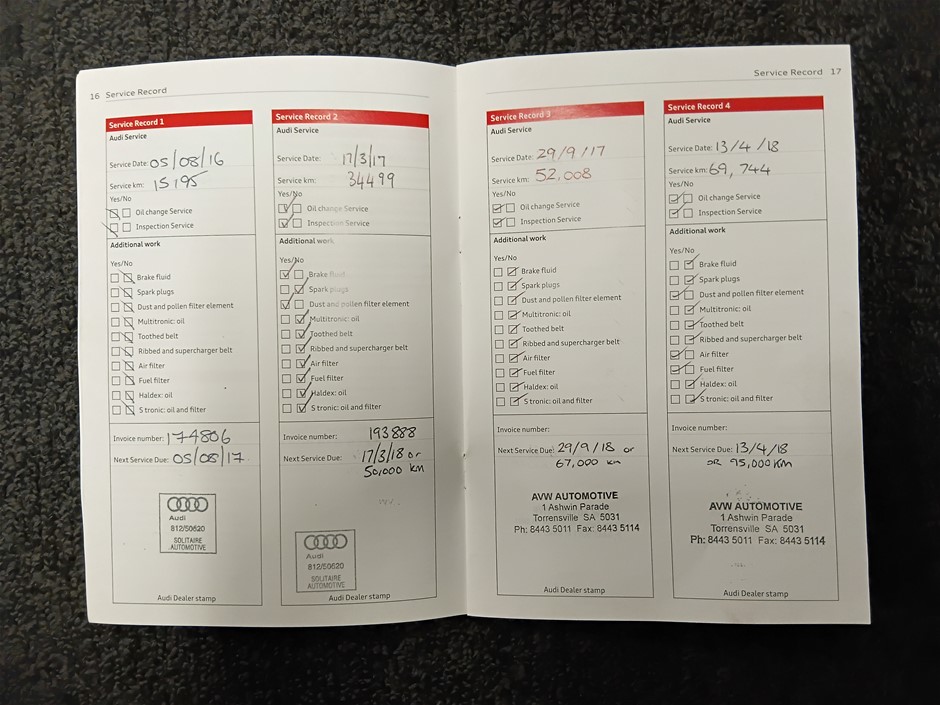 16 Service Record
Service Record 1
Audi Service
Service Date: 05/08/16
Service km: 15195
Yes/No
Oil change Service
Inspection Service
Additional work
Yes/No
Brake fluid
Spark plugs
Dust and pollen filter element
Multitronic: oil
Toothed belt
Ribbed and supercharger belt
Air filter
Fuel filter
Haldex: oil
S tronic: oil and filter
Invoice number: 174806
Next Service Due: 05/08/17
Audi
812/50620
SOLITAIRE
AUTOMOTIVE
Audi Dealer stamp
Service Record 2
Audi Service
Service Date: 17/3/17
Service km: 34499
Yes/No
Oil change Service
Inspection Service
Additional work
Yes/No
Brake fluid
Spark plugs
Dust and pollen filter element
Multitronic: oil
Toothed belt
Ribbed and supercharger belt
Air filter
Fuel filter
Haldex: oil
S tronic: oil and filter
Invoice number: 193888
Next Service Due: 17/3/18 or
50,000 km
Audi
812/50620
SOLITAIRE
AUTOMOTIVE
Audi Dealer stamp
Service Record 17
Service Record 3
Audi Service
Service Date: 29/9/17
Service km: 52,008
Yes/No
Oil change Service
Inspection Service
Additional work
Yes/No
Brake fluid
Spark plugs
Dust and pollen filter element
Multitronic: oil
Toothed belt
Ribbed and supercharger belt
Air filter
Fuel filter
Haldex: oil
S tronic: oil and filter
Invoice number:
Next Service Due: 29/9/18 or
67,000 km
AVW AUTOMOTIVE
1 Ashwin Parade
Torrensville SA 5031
Ph: 8443 5011 Fax: 8443 5114
Audi Dealer stamp
Service Record 4
Audi Service
Service Date: 13/4/18
Service km: 69,744
Yes/No
Oil change Service
Inspection Service
Additional work
Yes/No
Brake fluid
Spark plugs
Dust and pollen filter element
Multitronic: oil
Toothed belt
Ribbed and supercharger belt
Air filter
Fuel filter
Haldex: oil
S tronic: oil and filter
Invoice number:
Next Service Due: 13/4/18
OR 95,000 Km
AVW AUTOMOTIVE
1 Ashwin Parade
Torrensville SA 5031
Ph: 8443 5011 Fax: 8443 5114
Audi Dealer stamp